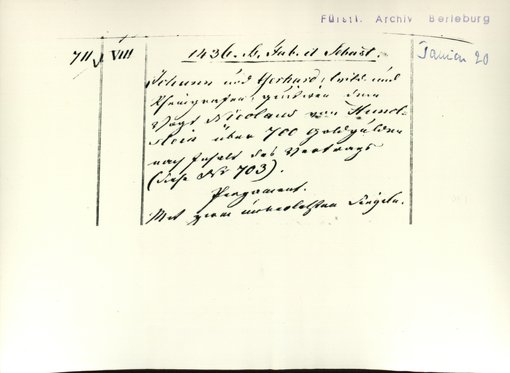 Fürstl. Archiv Berleburg
711 VIII
1436. S. Fab. et Sebast.
Januar 20
Johann und Gerhard, Wild und
Rheingrafen, quitiren dem
Vogt Nicolaus von Hunol-
stein über 700 Goldgulden
nach Inhalt des Vertrags
(siehe Nr 703).
Pergament.
Mit zwei unverletzten Siegeln.